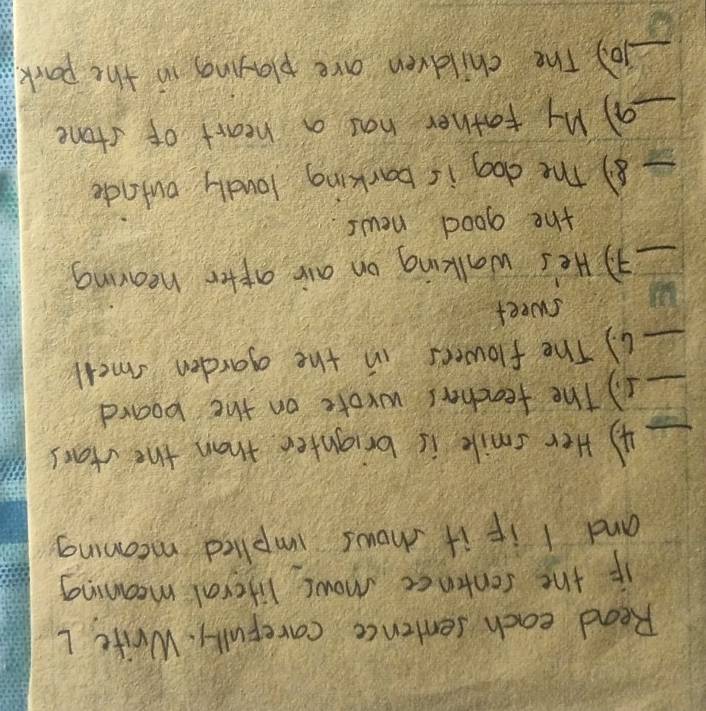 Read each sentence carefully. Write L
if the sentence shows literal meaning
and I if it shows implied meaning
_4) Her smile is brighter than the stars
_5.) The teachers wrote on the board
_6.) The flowers in the garden smell
sweet
_7.) He's walking on air after hearing
the good news.
_8.) The dog is barking loudly outside
_9) My father has a heart of stone
_10.) The children are playing in the park.